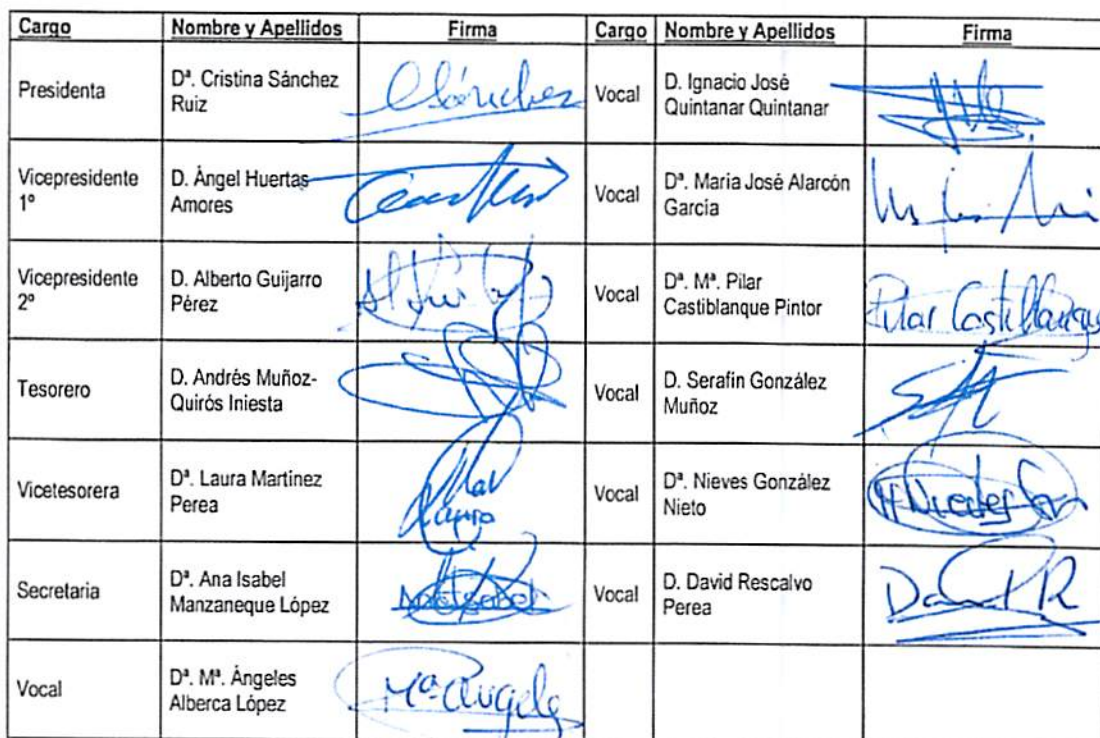 Cargo Nombre y Apellidos Firma Cargo Nombre y Apellidos Firma
Presidenta Dª. Cristina Sánchez Ruiz CSánchez Vocal D. Ignacio José Quintanar Quintanar
Vicepresidente 1º D. Ángel Huertas Amores Vocal Dª. María José Alarcón García
Vicepresidente 2º D. Alberto Guijarro Pérez Vocal Dª. Mª. Pilar Castiblanque Pintor Pilar Castiblanque
Tesorero D. Andrés Muñoz-Quirós Iniesta Vocal D. Serafín González Muñoz
Vicetesorera Dª. Laura Martínez Perea Laura Vocal Dª. Nieves González Nieto
Secretaria Dª. Ana Isabel Manzaneque López Vocal D. David Rescalvo Perea David R
Vocal Dª. Mª. Ángeles Alberca López Mª Angeles